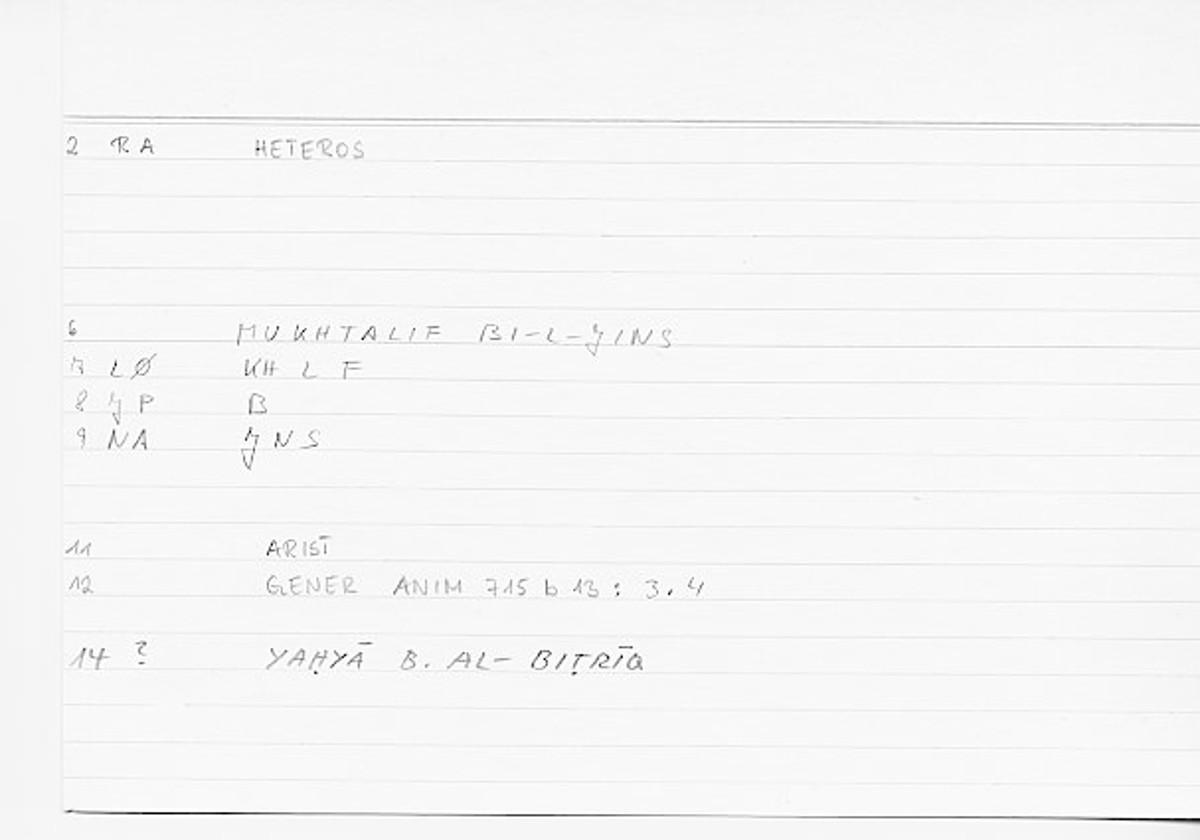 2 RA HETEROS
6 MUKHTALIF BI-L-JINS
7 LØ KH L F
8 JP B
9 NA JNS
11 ARIST
12 GENER ANIM 715 b 13 : 3.4
14 ? YAḤYĀ B. AL-BIṬRĪQ